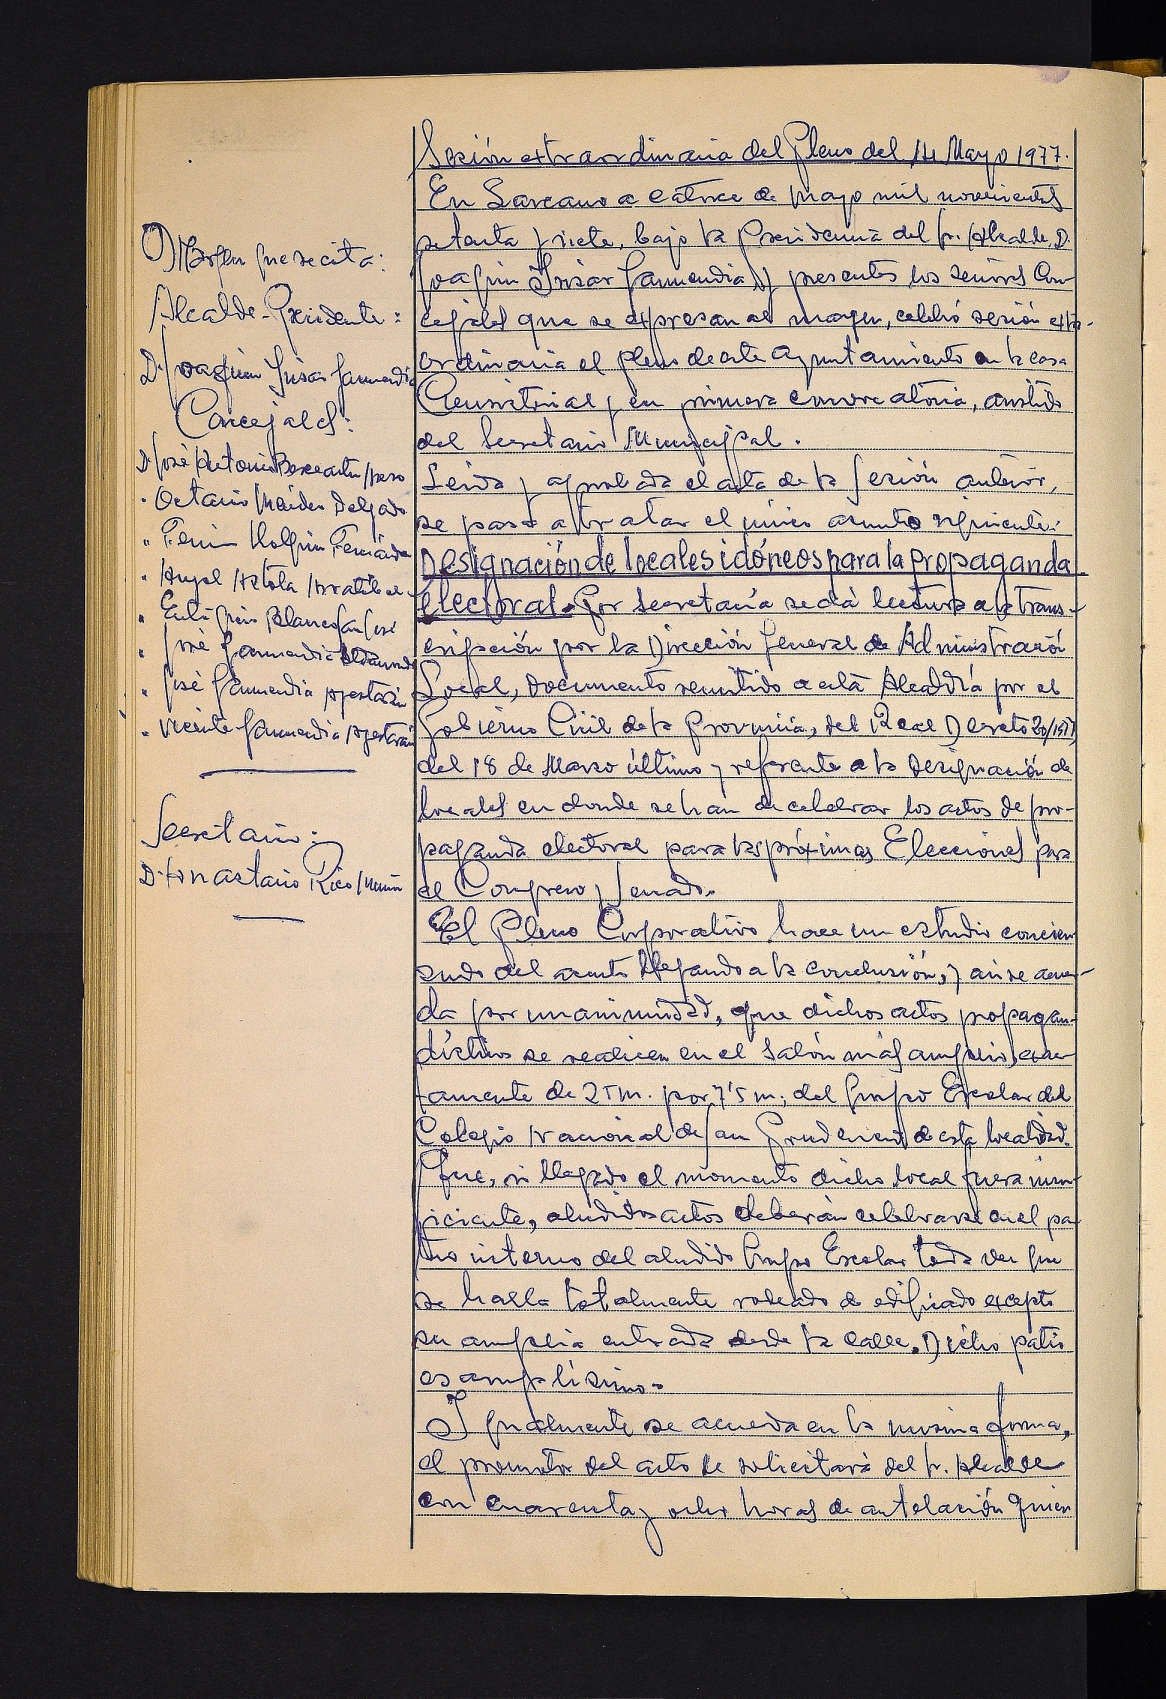 Sesión extraordinaria del Pleno del 14 Mayo 1977.
En Lazcano a catorce de mayo mil novecientos
setenta y siete, bajo la Presidencia del Sr. Alcalde, D.
Joaquin Irizar Garmendia y presentes los señores Con-
cejales que se expresan al margen, celebró sesión extra-
ordinaria el pleno de este Ayuntamiento en la casa
Consistorial y en primera convocatoria, asistido
del Secretario Municipal.
Leida y aprobada el acta de la sesión anterior,
se pasa a tratar el único asunto siguiente:
Designación de locales idóneos para la propaganda
electoral.- Por Secretaría se dá lectura a la trans-
cripción por la Dirección General de Administración
Local, documento remitido a esta Alcaldía por el
Gobierno Civil de la Provincia, del Real Decreto 20/1977,
del 18 de Marzo último y referente a la designación de
locales en donde se han de celebrar los actos de pro-
paganda electoral para las próximas Elecciones para
el Congreso y Senado.
El Pleno Corporativo hace un estudio concien-
zudo del asunto llegando a la conclusión, y así se acuer-
da por unanimidad, que dichos actos propagan-
dísticos se realicen en el Salón más amplio, exac-
tamente de 25 m. por 7'5 m., del Grupo Escolar del
Colegio Nacional de San Prudencio de esta localidad.
Que, si llegado el momento dicho local fuera insu-
ficiente, aludidos actos deberán celebrarse en el pa-
tio interno del aludido Grupo Escolar toda vez que
se halla totalmente rodeado de edificado excepto
su amplia entrada desde la calle. Dicho patio
es amplísimo.
Igualmente se acuerda en la misma forma,
el promotor del acto le solicitará del Sr. Alcalde
con cuarenta y ocho horas de antelación quien
Margen que se cita:
Alcalde-Presidente:
D. Joaquin Irizar Garmendia
Concejales:
D. José Antonio
" Octavio Delgado
" Fermin Holguin Fernández
" Angel Artola
" Blanco San José
" José Garmendia
" José Garmendia Apestarin
" Vicente Garmendia Apestarin
Secretario:
D. Anastasio Rico